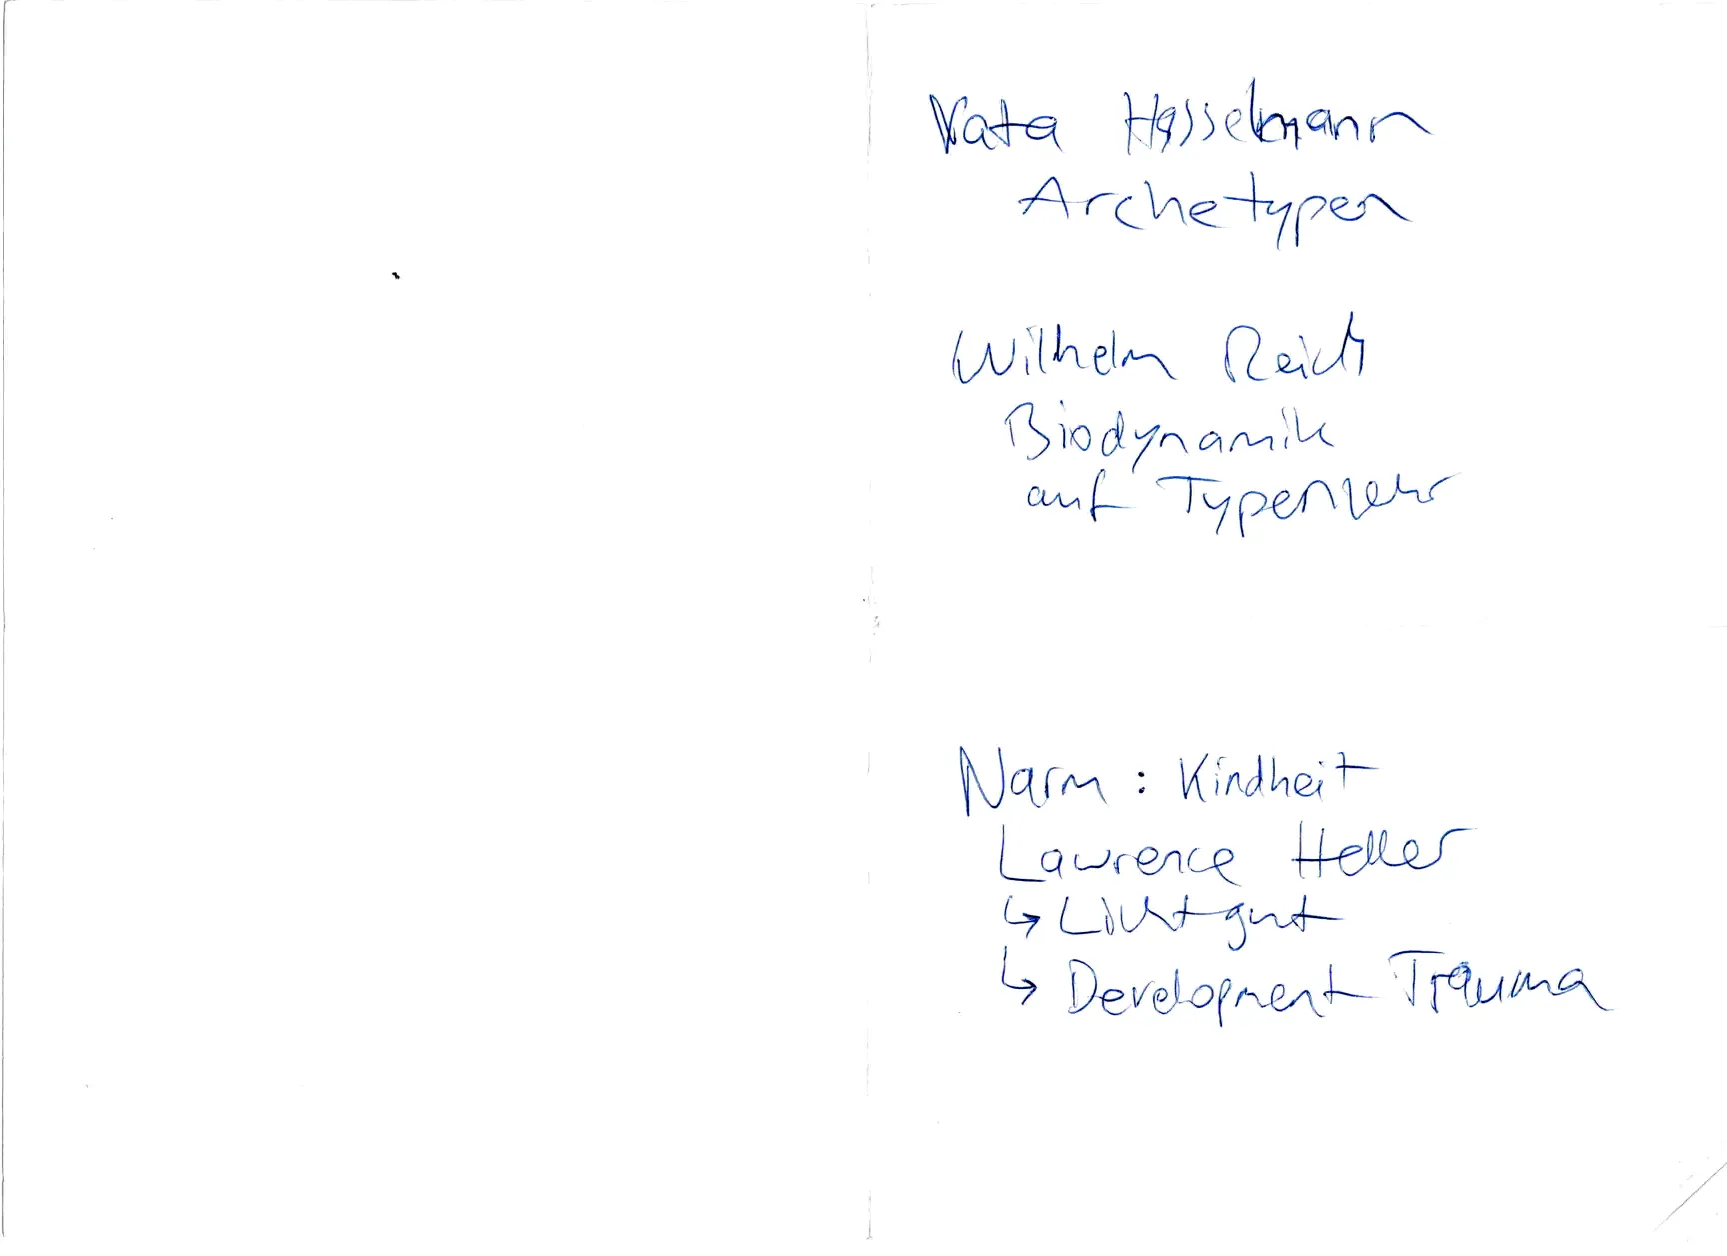 Vata Hasselmann
Archetypen
Wilhelm Reich
Biodynamik
auf
Narm : Kindheit
Lawrence Heller
↳ Lichtgut
↳ Development Trauma